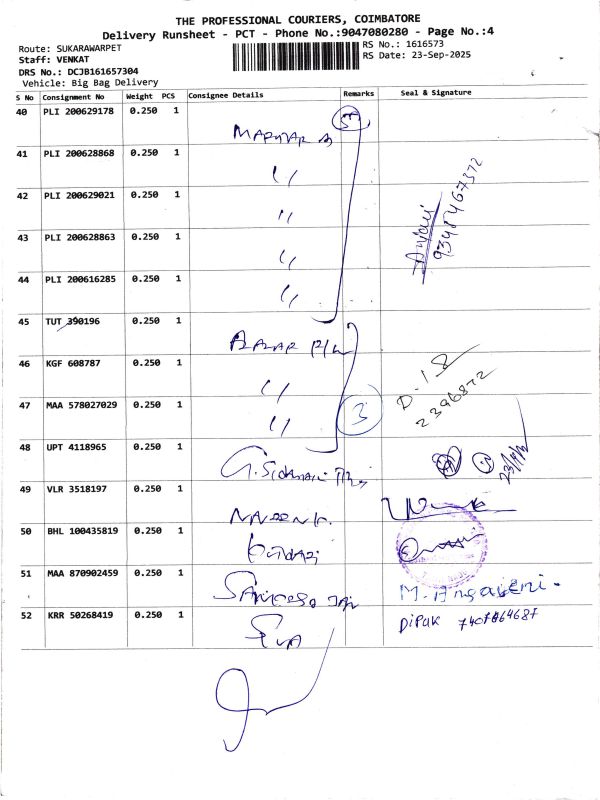 THE PROFESSIONAL COURIERS, COIMBATORE
Delivery Runsheet - PCT - Phone No.:9047080280 - Page No.:4
Route: SUKARAWARPET
RS No.: 1616573
Staff: VENKAT
RS Date: 23-Sep-2025
DRS No.: DCJB161657304
Vehicle: Big Bag Delivery
S No Consignment No Weight PCS Consignee Details Remarks Seal & Signature
40 PLI 200629178 0.250 1
41 PLI 200628868 0.250 1 "
42 PLI 200629021 0.250 1 "
43 PLI 200628863 0.250 1 "
44 PLI 200616285 0.250 1 "
45 TUT 390196 0.250 1
46 KGF 608787 0.250 1 "
47 MAA 578027029 0.250 1 " 3
48 UPT 4118965 0.250 1
49 VLR 3518197 0.250 1 NAVEEN K.
50 BHL 100435819 0.250 1
51 MAA 870902459 0.250 1 M. Angaleni.
52 KRR 50268419 0.250 1 Dipak